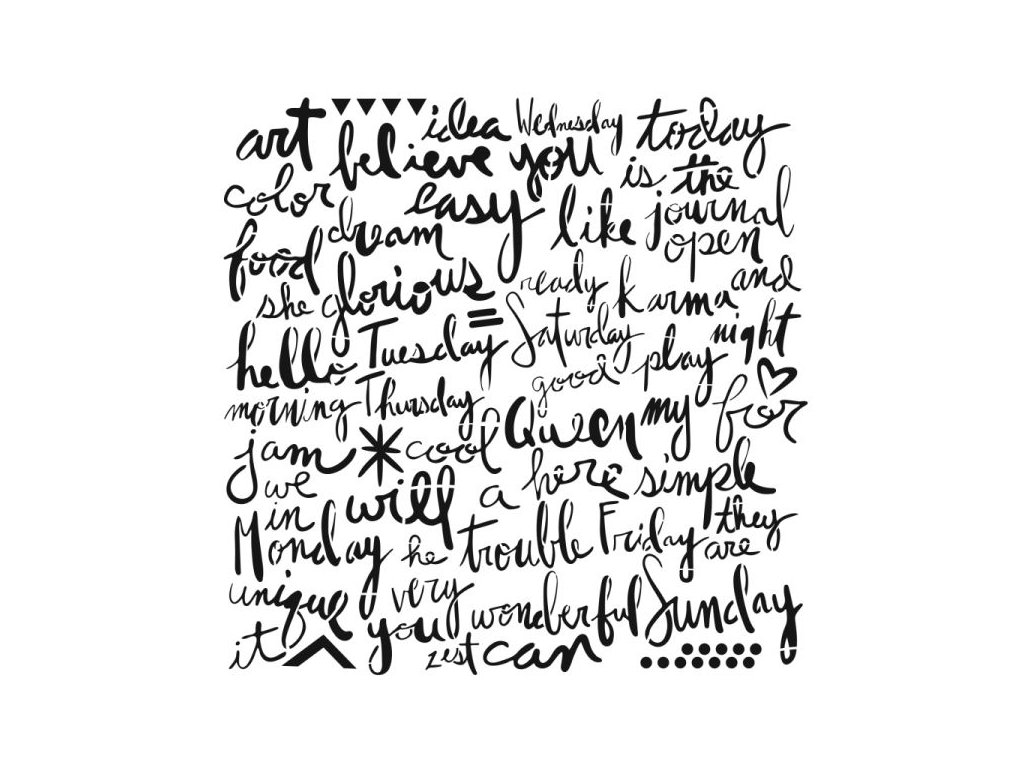 art idea Wednesday today
believe you is the
color easy like journal
dream open
food ready karma and
she glorious =
hello Tuesday Saturday night
good play
morning Thursday Queen my for
jam * cool
we will a here simple
in
Monday he trouble Friday they
are
unique very wonderful Sunday
it you zest can